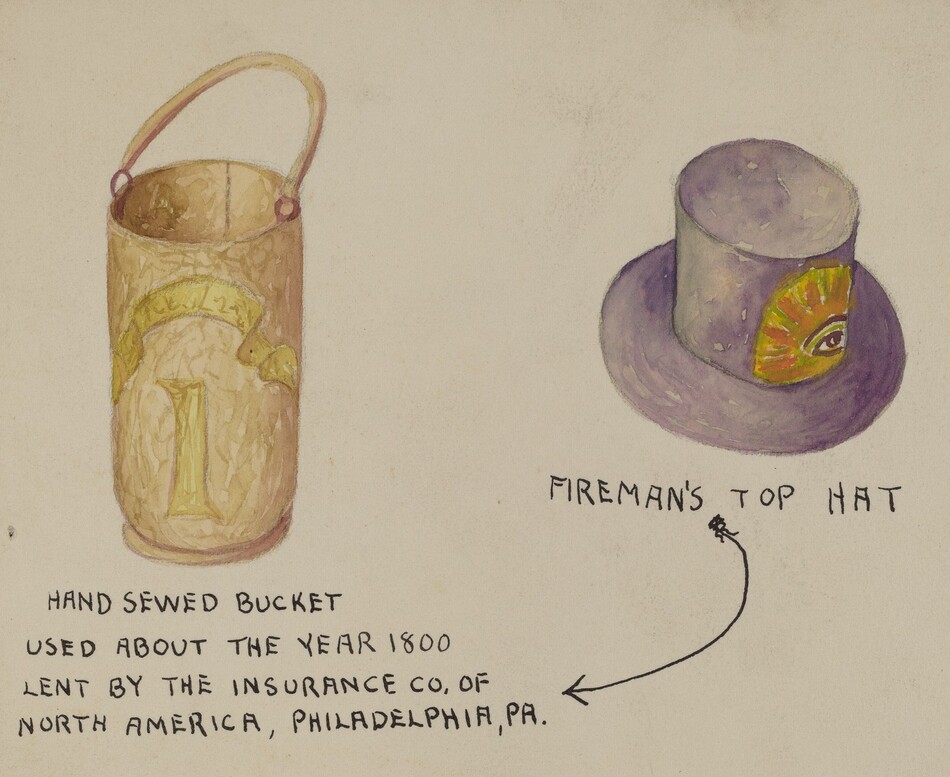 1
FIREMAN'S TOP HAT
HAND SEWED BUCKET
USED ABOUT THE YEAR 1800
LENT BY THE INSURANCE CO. OF
NORTH AMERICA, PHILADELPHIA, PA.